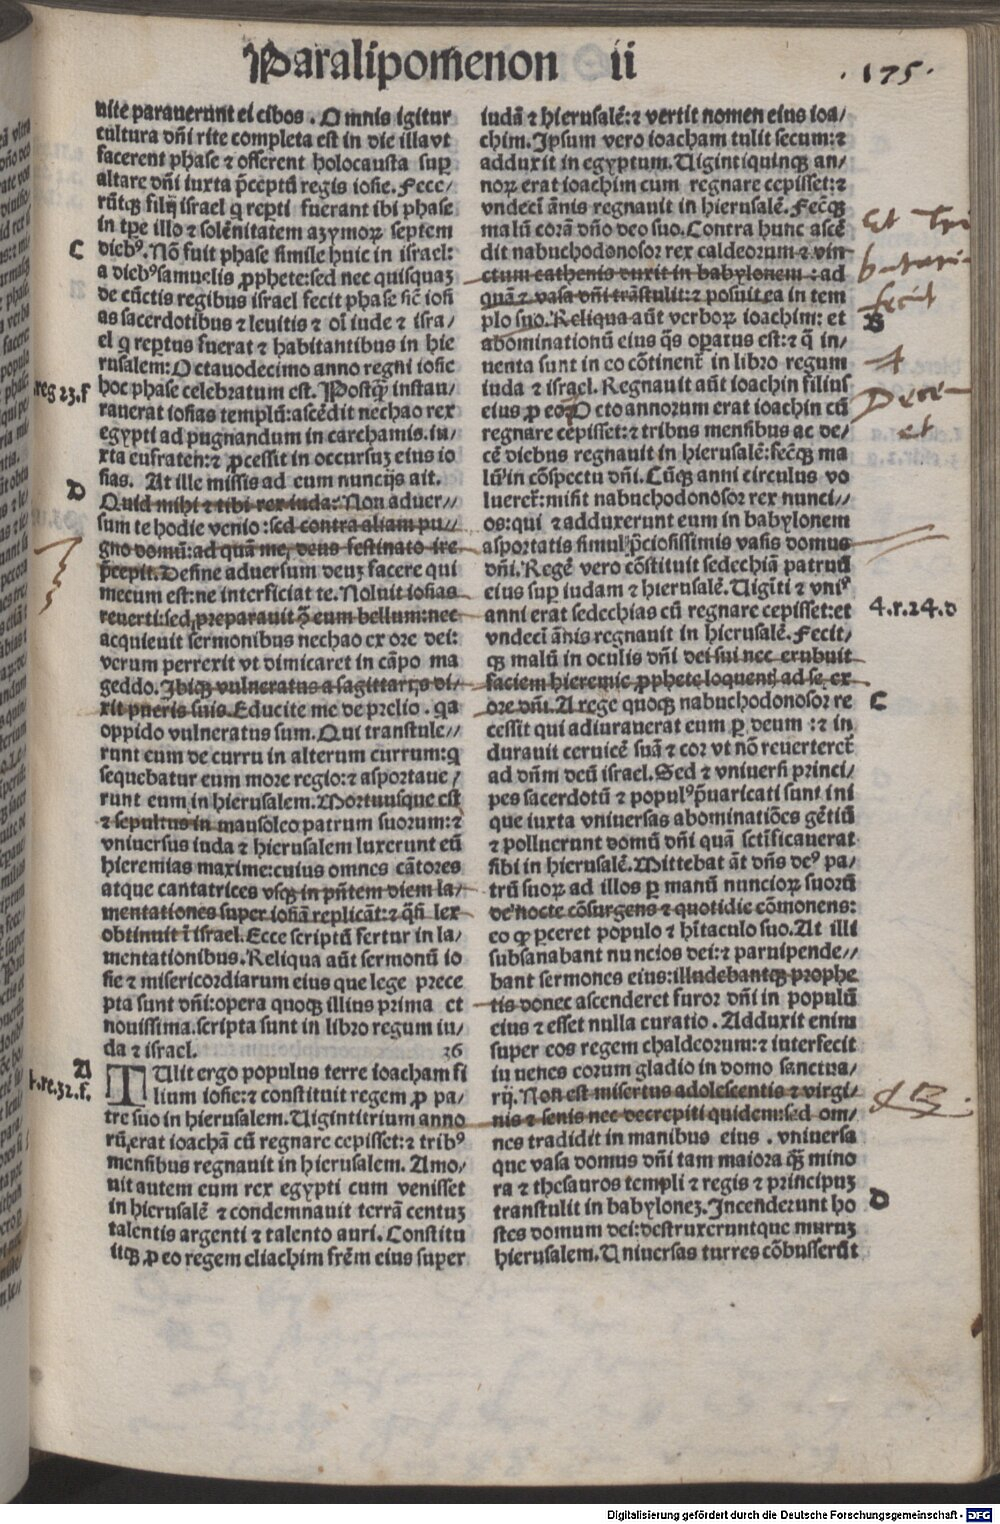 Paralipomenon ii
.175.
nite parauerunt ei cibos. Omnis igitur
cultura dñi rite completa est in die illa vt
facerent phase ⁊ offerent holocausta sup
altare dñi iuxta p̄ceptū regis iosie. Fece/
rūtqꝫ filij israel q reꝑti fuerant ibi phase
in tꝑe illo ⁊ solēnitatem azymoꝝ septem
C
diebꝰ. Nō fuit phase simile huic in israel:
a diebꝰ samuelis ꝓphete: sed nec quisquaꝫ
de cūctis regibus israel fecit phase sic̄ iosi
as sacerdotibus ⁊ leuitis ⁊ oī iude ⁊ isra/
el q reꝑtus fuerat ⁊ habitantibus in hie
rusalem: Octauodecimo anno regni iosie
reg 23.f
hoc phase celebratum est. Postqꝫ̄ instau/
rauerat iosias templū: ascēdit nechao rex
egypti ad pugnandum in carchamis. iu/
xta eufraten: ⁊ ꝓcessit in occursuꝫ eius io
sias. At ille missis ad eum nuncijs ait.
D
Quid mihi ⁊ tibi rex iuda: Non aduer//
sum te hodie venio: sed contra aliam pu//
gno domū: ad quā me, deus festinato ire
p̄cepit. Desine aduersum deuꝫ facere qui
mecum est: ne interficiat te. Noluit iosias
reuerti: sed preparauit ꝯ̄ eum bellum: nec
acquieuit sermonibus nechao ex ore dei:
verum perrexit vt dimicaret in cāpo ma
geddo. Ibiqꝫ vulneratus a sagittarijs di/
xit pueris suis. Educite me de prelio. qa
oppido vulneratus sum. Qui transtule//
runt eum de curru in alterum currum: q
sequebatur eum more regio: ⁊ asportaue/
runt eum in hierusalem. Mortuusque est
⁊ sepultus in mausoleo patrum suorum: ⁊
vniuersus iuda ⁊ hierusalem luxerunt eū
hieremias maxime: cuius omnes cātores
atque cantatrices vsqꝫ in pn̄tem diem la/
mentationes super iosiā replicāt: ⁊ q̄si lex
obtinuit ī israel. Ecce scriptū fertur in la/
mentationibus. Reliqua aūt sermonū io
sie ⁊ misericordiarum eius que lege prece
pta sunt dñi: opera quoqꝫ illius prima et
nouissima. scripta sunt in libro regum iu/
da ⁊ israel. 36
A
TUlit ergo populus terre ioacham fi
lium iosie: ⁊ constituit regem ꝓ pa/
tre suo in hierusalem. Uigintitrium anno
rū, erat ioachā cū regnare cepisset: ⁊ tribꝰ
mensibus regnauit in hierusalem. Amo/
uit autem eum rex egypti cum venisset
in hierusalē ⁊ condemnauit terrā centuꝫ
talentis argenti ⁊ talento auri. Constitu
itqꝫ ꝓ eo regem eliachim frēm eius super
iudā ⁊ hierusalē: ⁊ vertit nomen eius ioa/
chim. Ipsum vero ioacham tulit secum: ⁊
adduxit in egyptum. Uigintiquinqꝫ an/
noꝝ erat ioachim cum regnare cepisset: ⁊
vndeci ānis regnauit in hierusalē. Fecitqꝫ
malū corā dño deo suo. Contra hunc ascē
dit nabuchodonosor rex caldeorum ⁊ vin
ctum cathenis duxit in babylonem: ad
quā ⁊ vasa dñi trāstulit: ⁊ posuit ea in tem
plo suo. Reliqua aūt verboꝝ ioachim: et
B
abominationū eius q̄s oꝑatus est: ⁊ q̄ in/
uenta sunt in eo cōtinent̄ in libro regum
iuda ⁊ israel. Regnauit aūt ioachin filius
eius ꝓ eo. Octo annorum erat ioachin cū
regnare cepisset: ⁊ tribus mensibus ac de/
cē diebus regnauit in hierusalē: fecitqꝫ ma
lū in cōspectu dñi. Cūqꝫ anni circulus vo
lueret̄: misit nabuchodonosor rex nunci//
os: qui ⁊ adduxerunt eum in babylonem
asportatis simul p̄ciosissimis vasis domus
dñi. Regē vero cōstituit sedechiā patruū
eius sup iudam ⁊ hierusalē. Uigīti ⁊ vniꝰ
4.r.24.d
anni erat sedechias cū regnare cepisset: et
vndeci ānis regnauit in hierusalē. Fecit/
qꝫ malū in oculis dñi dei sui nec erubuit
faciem hieremie ꝓphete loquentis ad se, ex
ore dñi. A rege quoqꝫ nabuchodonosor re
C
cessit qui adiurauerat eum ꝑ deum: ⁊ in
durauit ceruicē suā ⁊ cor vt nō reuerteret̄
ad dñm deū israel. Sed ⁊ vniuersi princi/
pes sacerdotū ⁊ populꝰ p̄uaricati sunt ini
que iuxta vniuersas abominatiōes gētiū
⁊ polluerunt domū dñi quā sctīficauerat
sibi in hierusalē. Mittebat āt dñs deꝰ pa/
trū suoꝝ ad illos ꝑ manū nuncioꝝ suorū
de nocte cōsurgens ⁊ quotidie cōmonens:
eo ꝙ ꝑceret populo ⁊ hītaculo suo. At illi
subsanabant nuncios dei: ⁊ paruipende//
bant sermones eius: illudebantqꝫ prophe
tis donec ascenderet furor dñi in populū
eius ⁊ esset nulla curatio. Adduxit enim
super eos regem chaldeorum: ⁊ interfecit
iuuenes eorum gladio in domo sanctua/
rij. Non est misertus adolescentis ⁊ virgi/
nis ⁊ senis nec decrepiti quidem: sed om/
nes tradidit in manibus eius. vniuersa
que vasa domus dñi tam maiora qꝫ̄ mino
ra ⁊ thesauros templi ⁊ regis ⁊ principuꝫ
transtulit in babyloneꝫ. Incenderunt ho
D
stes domum dei: destruxeruntque muruꝫ
hierusalem. Uniuersas turres cōbusserūt
Digitalisierung gefördert durch die Deutsche Forschungsgemeinschaft - DFG